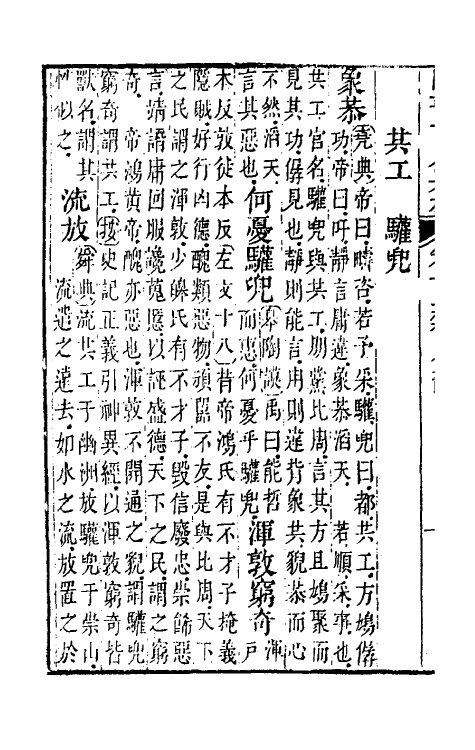 共工　驩兜
象恭
堯典帝曰疇咨若予采驩兜曰都共工方鳩僝
功帝曰吁靜言庸違象恭滔天　若順采事也
共工官名驩兜與共工朋黨比周言其方且鳩聚而
見其功僝見也靜則能言用則違背象共貌恭而心
不然滔天
言其惡也
何憂驩兜
皋陶謨禹曰能哲
而惠何憂乎驩兜
渾敦窮奇
渾
戸
本反敦徒本反左文十八昔帝鴻氏有不才子掩義
隱賊好行凶德醜類惡物頑嚚不友是與比周天下
之民謂之渾敦少皞氏有不才子毀信廢忠崇飾惡
言靖譖庸回服讒蒐慝以誣盛德天下之民謂之窮
奇　帝鴻黃帝醜亦惡也渾敦不開通之貌謂驩兜
窮奇謂共工按史記正義引神異經以渾敦窮奇皆
獸名謂其
性似之
流放
舜典流共工于幽洲放驩兜于崇山
流遣之遠去如水之流放置之於